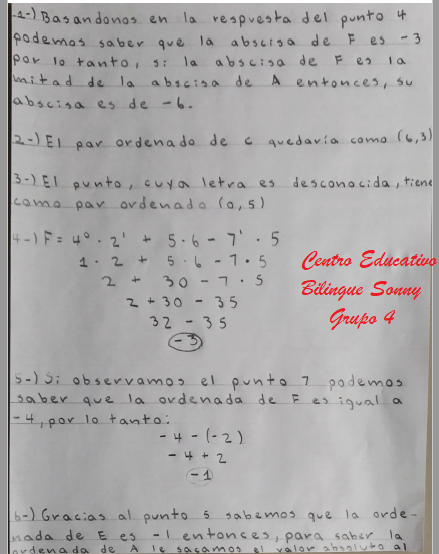 1-) Basandonos en la respuesta del punto 4
podemos saber que la abscisa de F es -3
por lo tanto, si la abscisa de F es la
mitad de la abscisa de A entonces, su
abscisa es de -6.
2-) El par ordenado de c quedaría como (6,3)
3-) El punto, cuya letra es desconocida, tiene
como par ordenado (0,5)
4-) F = 4⁰ · 2¹ + 5 · 6 - 7¹ · 5
1 · 2 + 5 · 6 - 7 · 5
2 + 30 - 7 · 5
2 + 30 - 35
32 - 35
-3
Centro Educativo
Bilingue Sonny
Grupo 4
5-) Si observamos el punto 7 podemos
saber que la ordenada de F es igual a
-4, por lo tanto:
-4 - (-2)
-4 + 2
-1
6-) Gracias al punto 5 sabemos que la orde-
nada de E es -1 entonces, para saber la
ordenada de A le sacamos el valor absoluto al